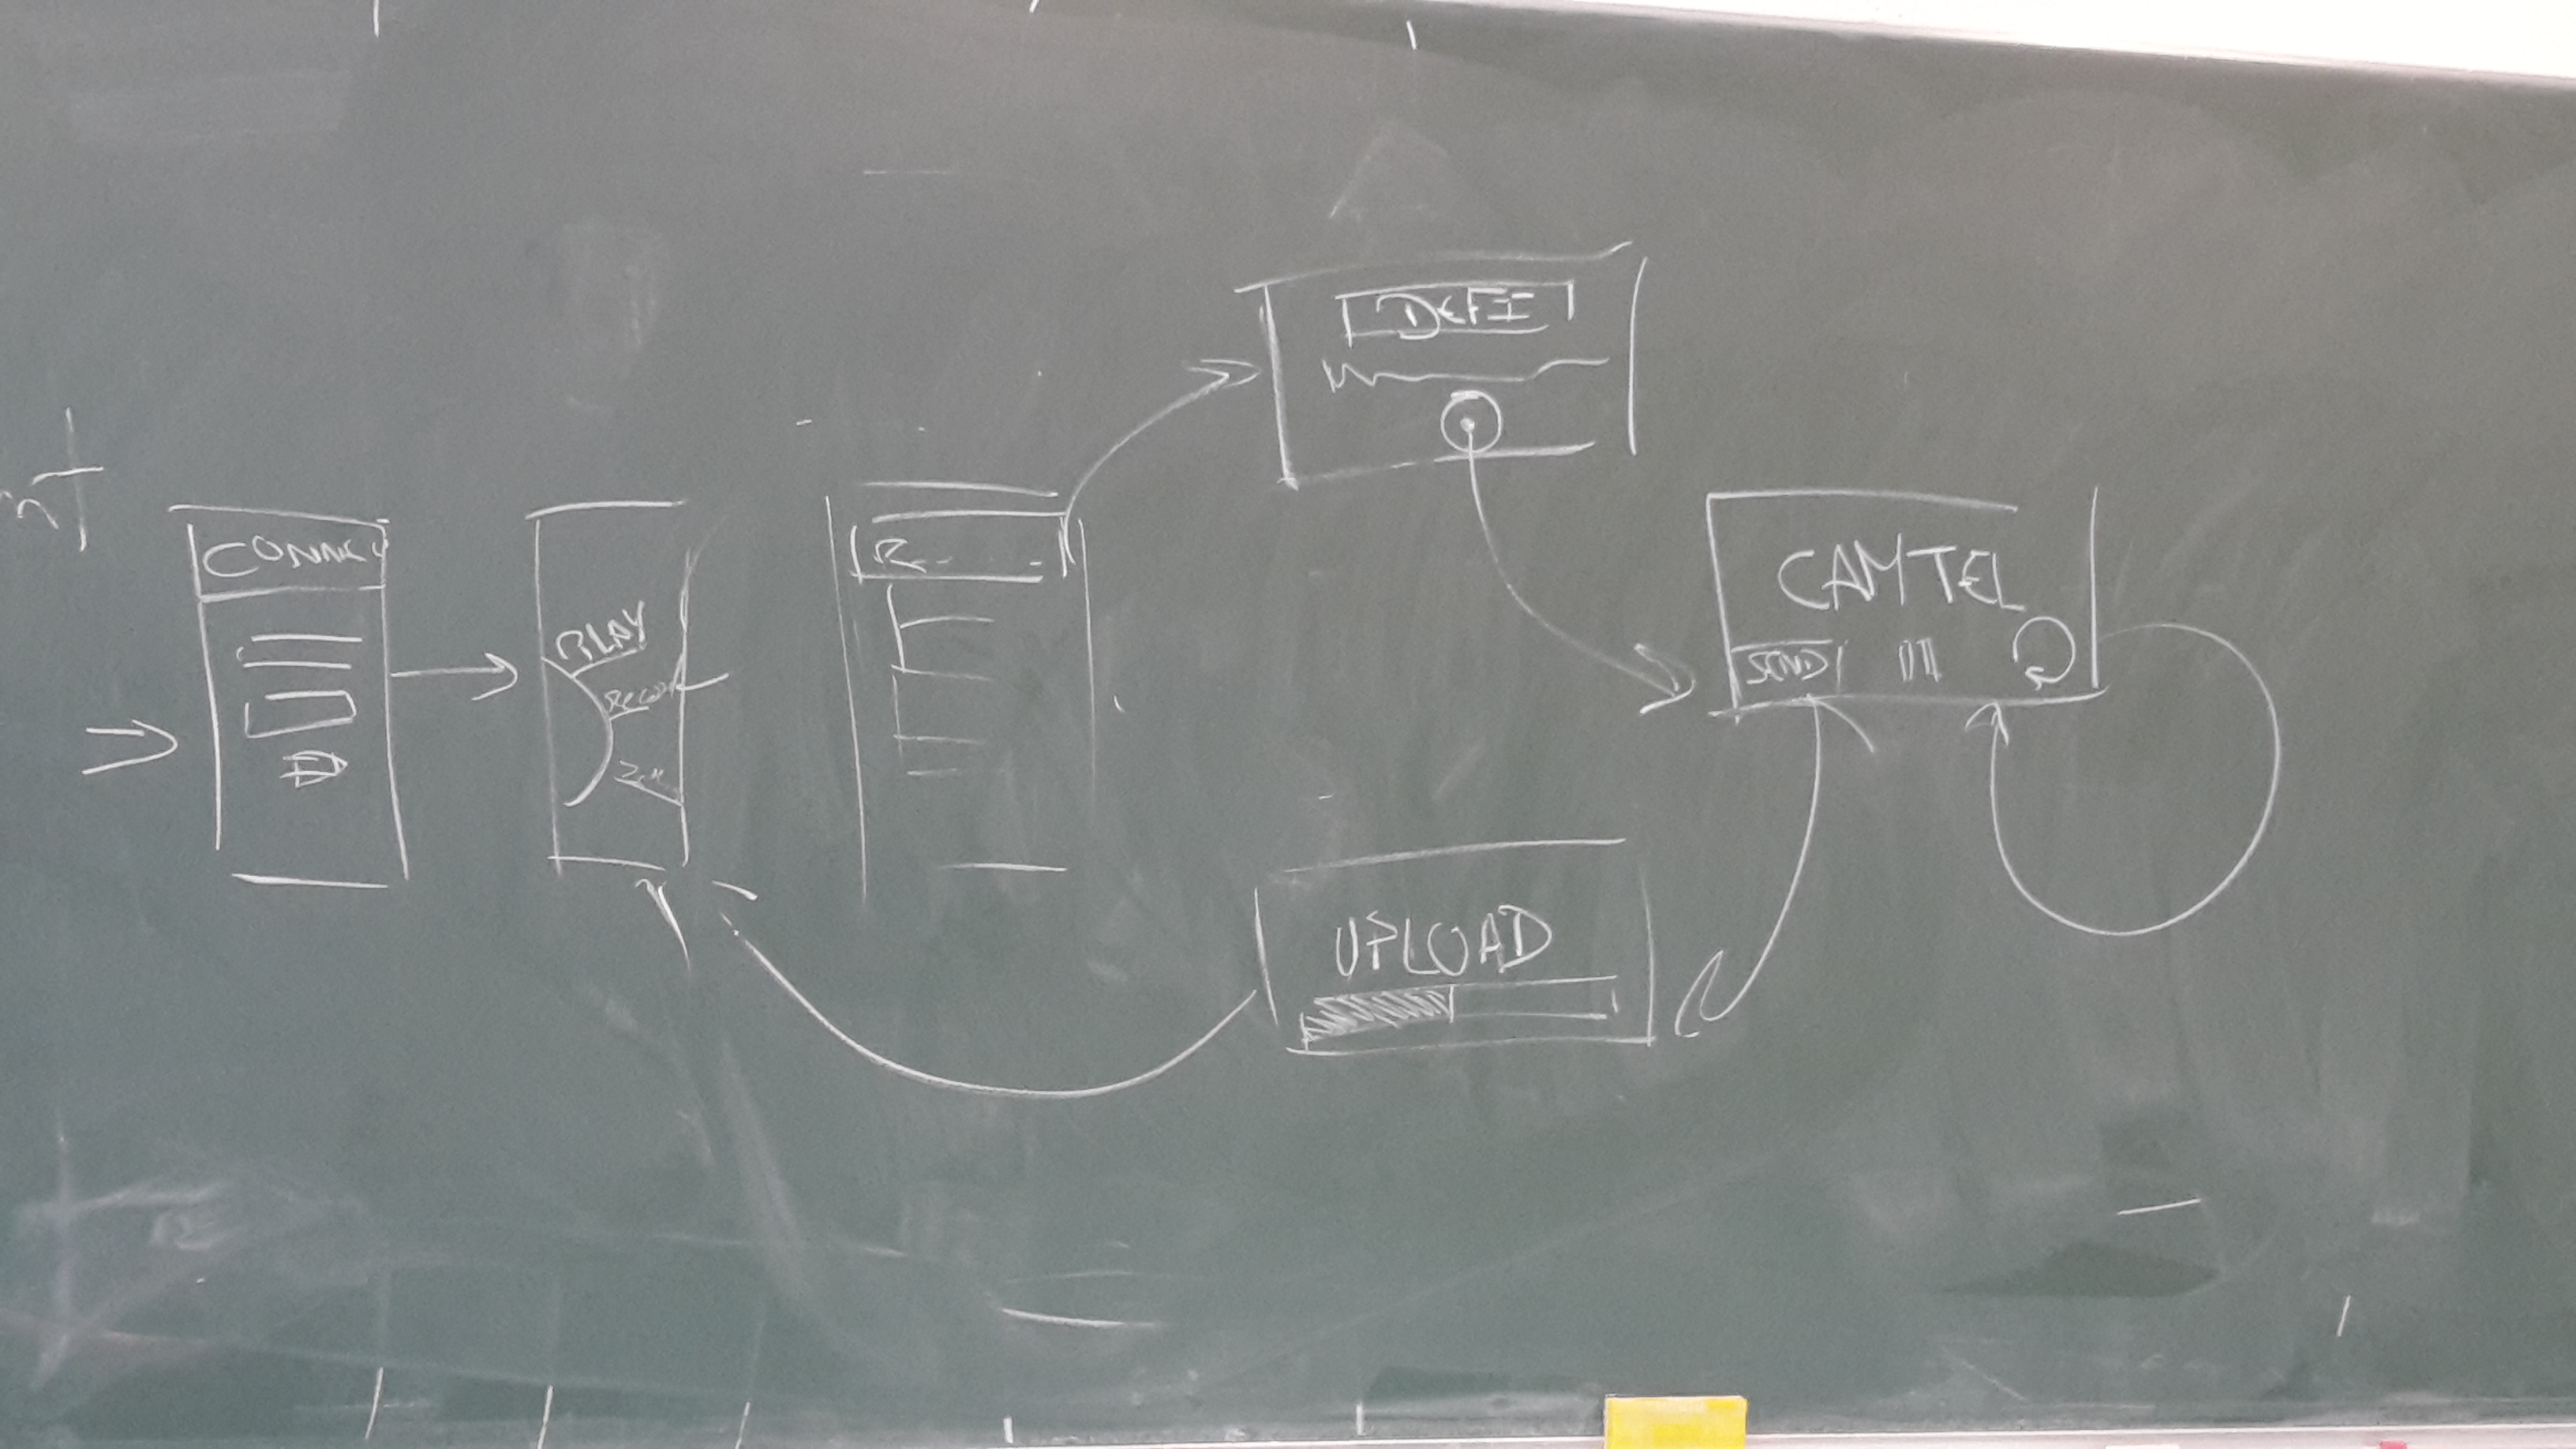 CONNEC
PLAY
Recor
DEFI
CAMTEL
SEND
UPLOAD